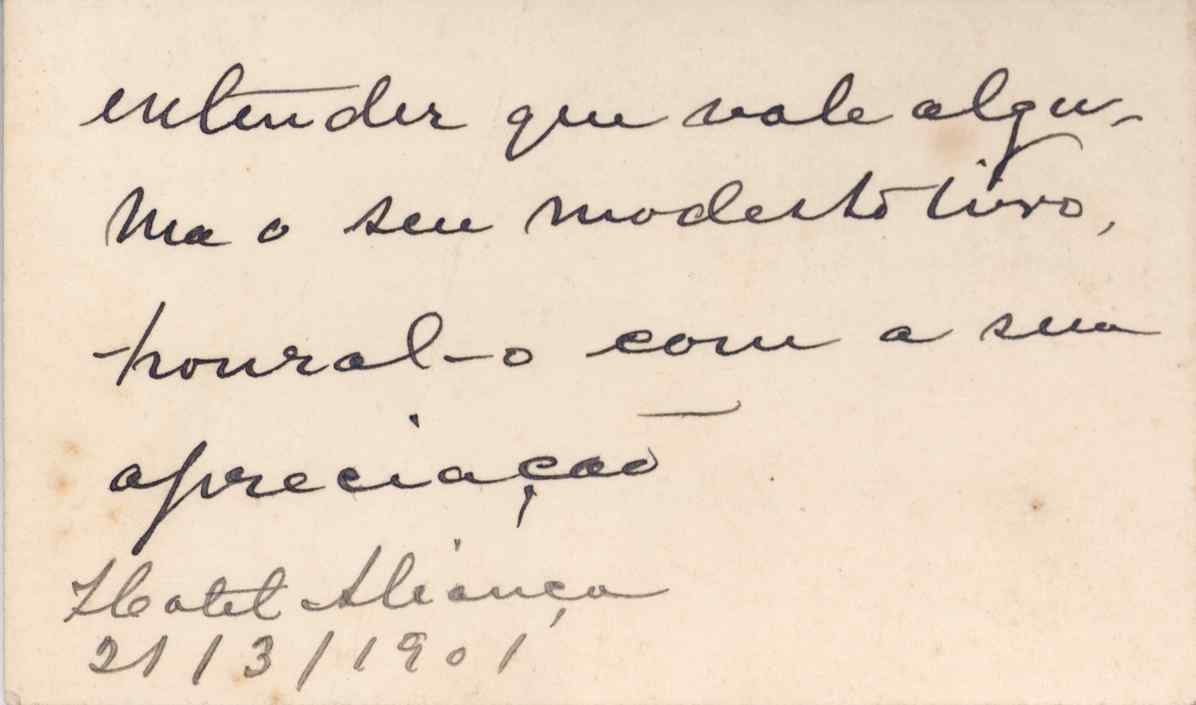 entender que vale algu-
ma o seu modesto livro,
honral-o com a sua
apreciação
Hotel Aliança
21/3/1901